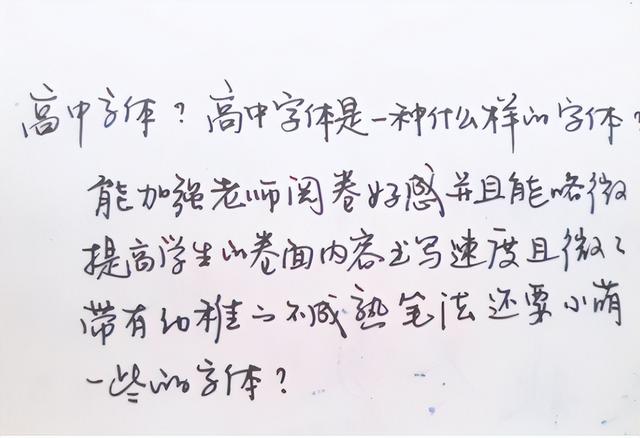 高中字体？高中字体是一种什么样的字体？
能加强老师阅卷好感并且能略微
提高学生的卷面内容书写速度且微微
带有幼稚与不成熟笔法还要小萌
一些的字体？